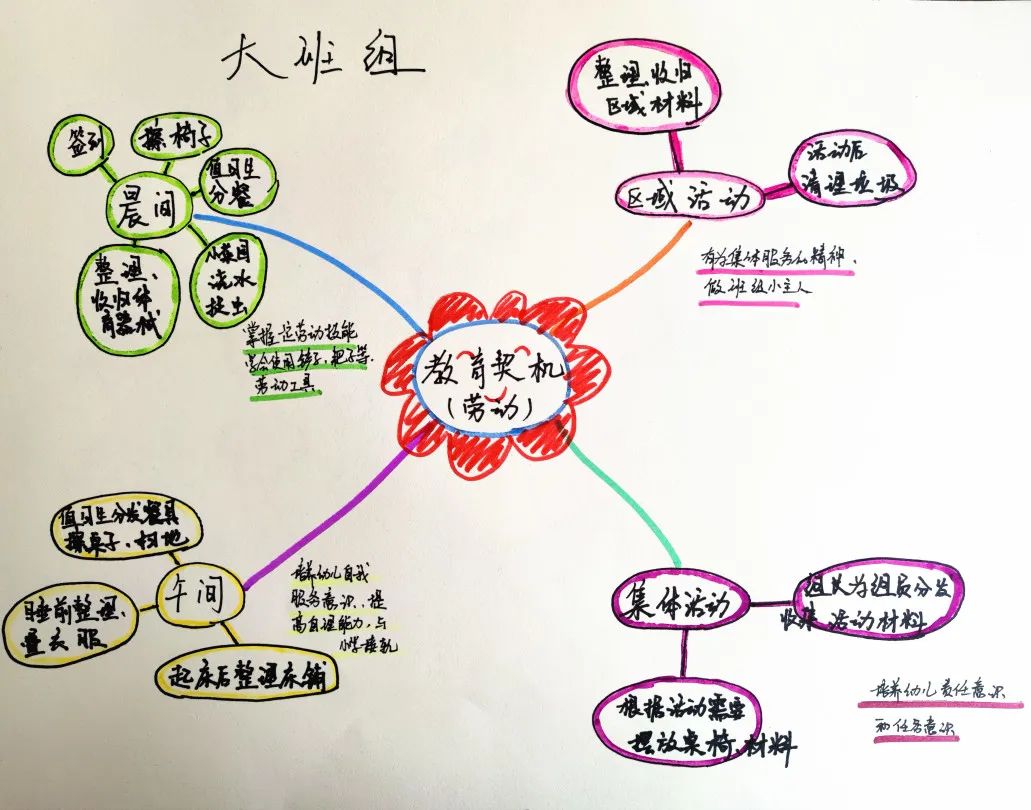 大班组
签到
擦椅子
值日生
分餐
晨间
整理、
收归体
育器械
浇水
捉虫
掌握一定劳动技能
学会使用铲子、耙子等
劳动工具
整理、收归
区域材料
区域活动
活动后
清理垃圾
有为集体服务的精神、
做班级小主人
教育契机
(劳动)
值日生分发餐具
擦桌子、扫地
午间
睡前整理、
叠衣服
起床后整理床铺
培养幼儿自我
服务意识、提
高自理能力,与
小学接轨
集体活动
组长为组员分发
收集 活动材料
根据活动需要
摆放桌椅、材料
培养幼儿责任意识
和任务意识